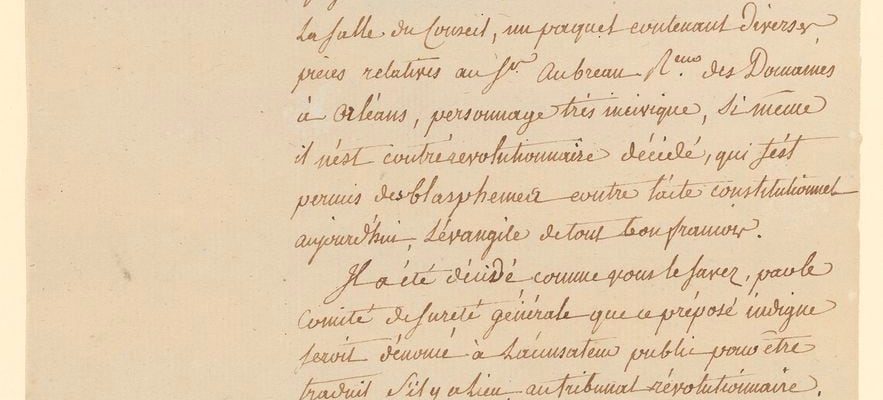 La salle du Conseil, un paquet contenant diverses
pièces relatives au Sr. Aubreau Rr. des Domaines
à Orléans, personnage très incivique, Si même
il n'est contrérevolutionnaire décidé, qui s'est
permis des blasphemes contre l'acte constitutionnel
aujourd'hui, L'évangile de tout bon francois.
Il a été décidé comme vous le savez, par le
Comité de sureté générale que ce préposé indigne
seroit dénoncé à L'accusateur public pour être
traduit s'il y a Lieu, au tribunal révolutionnaire.